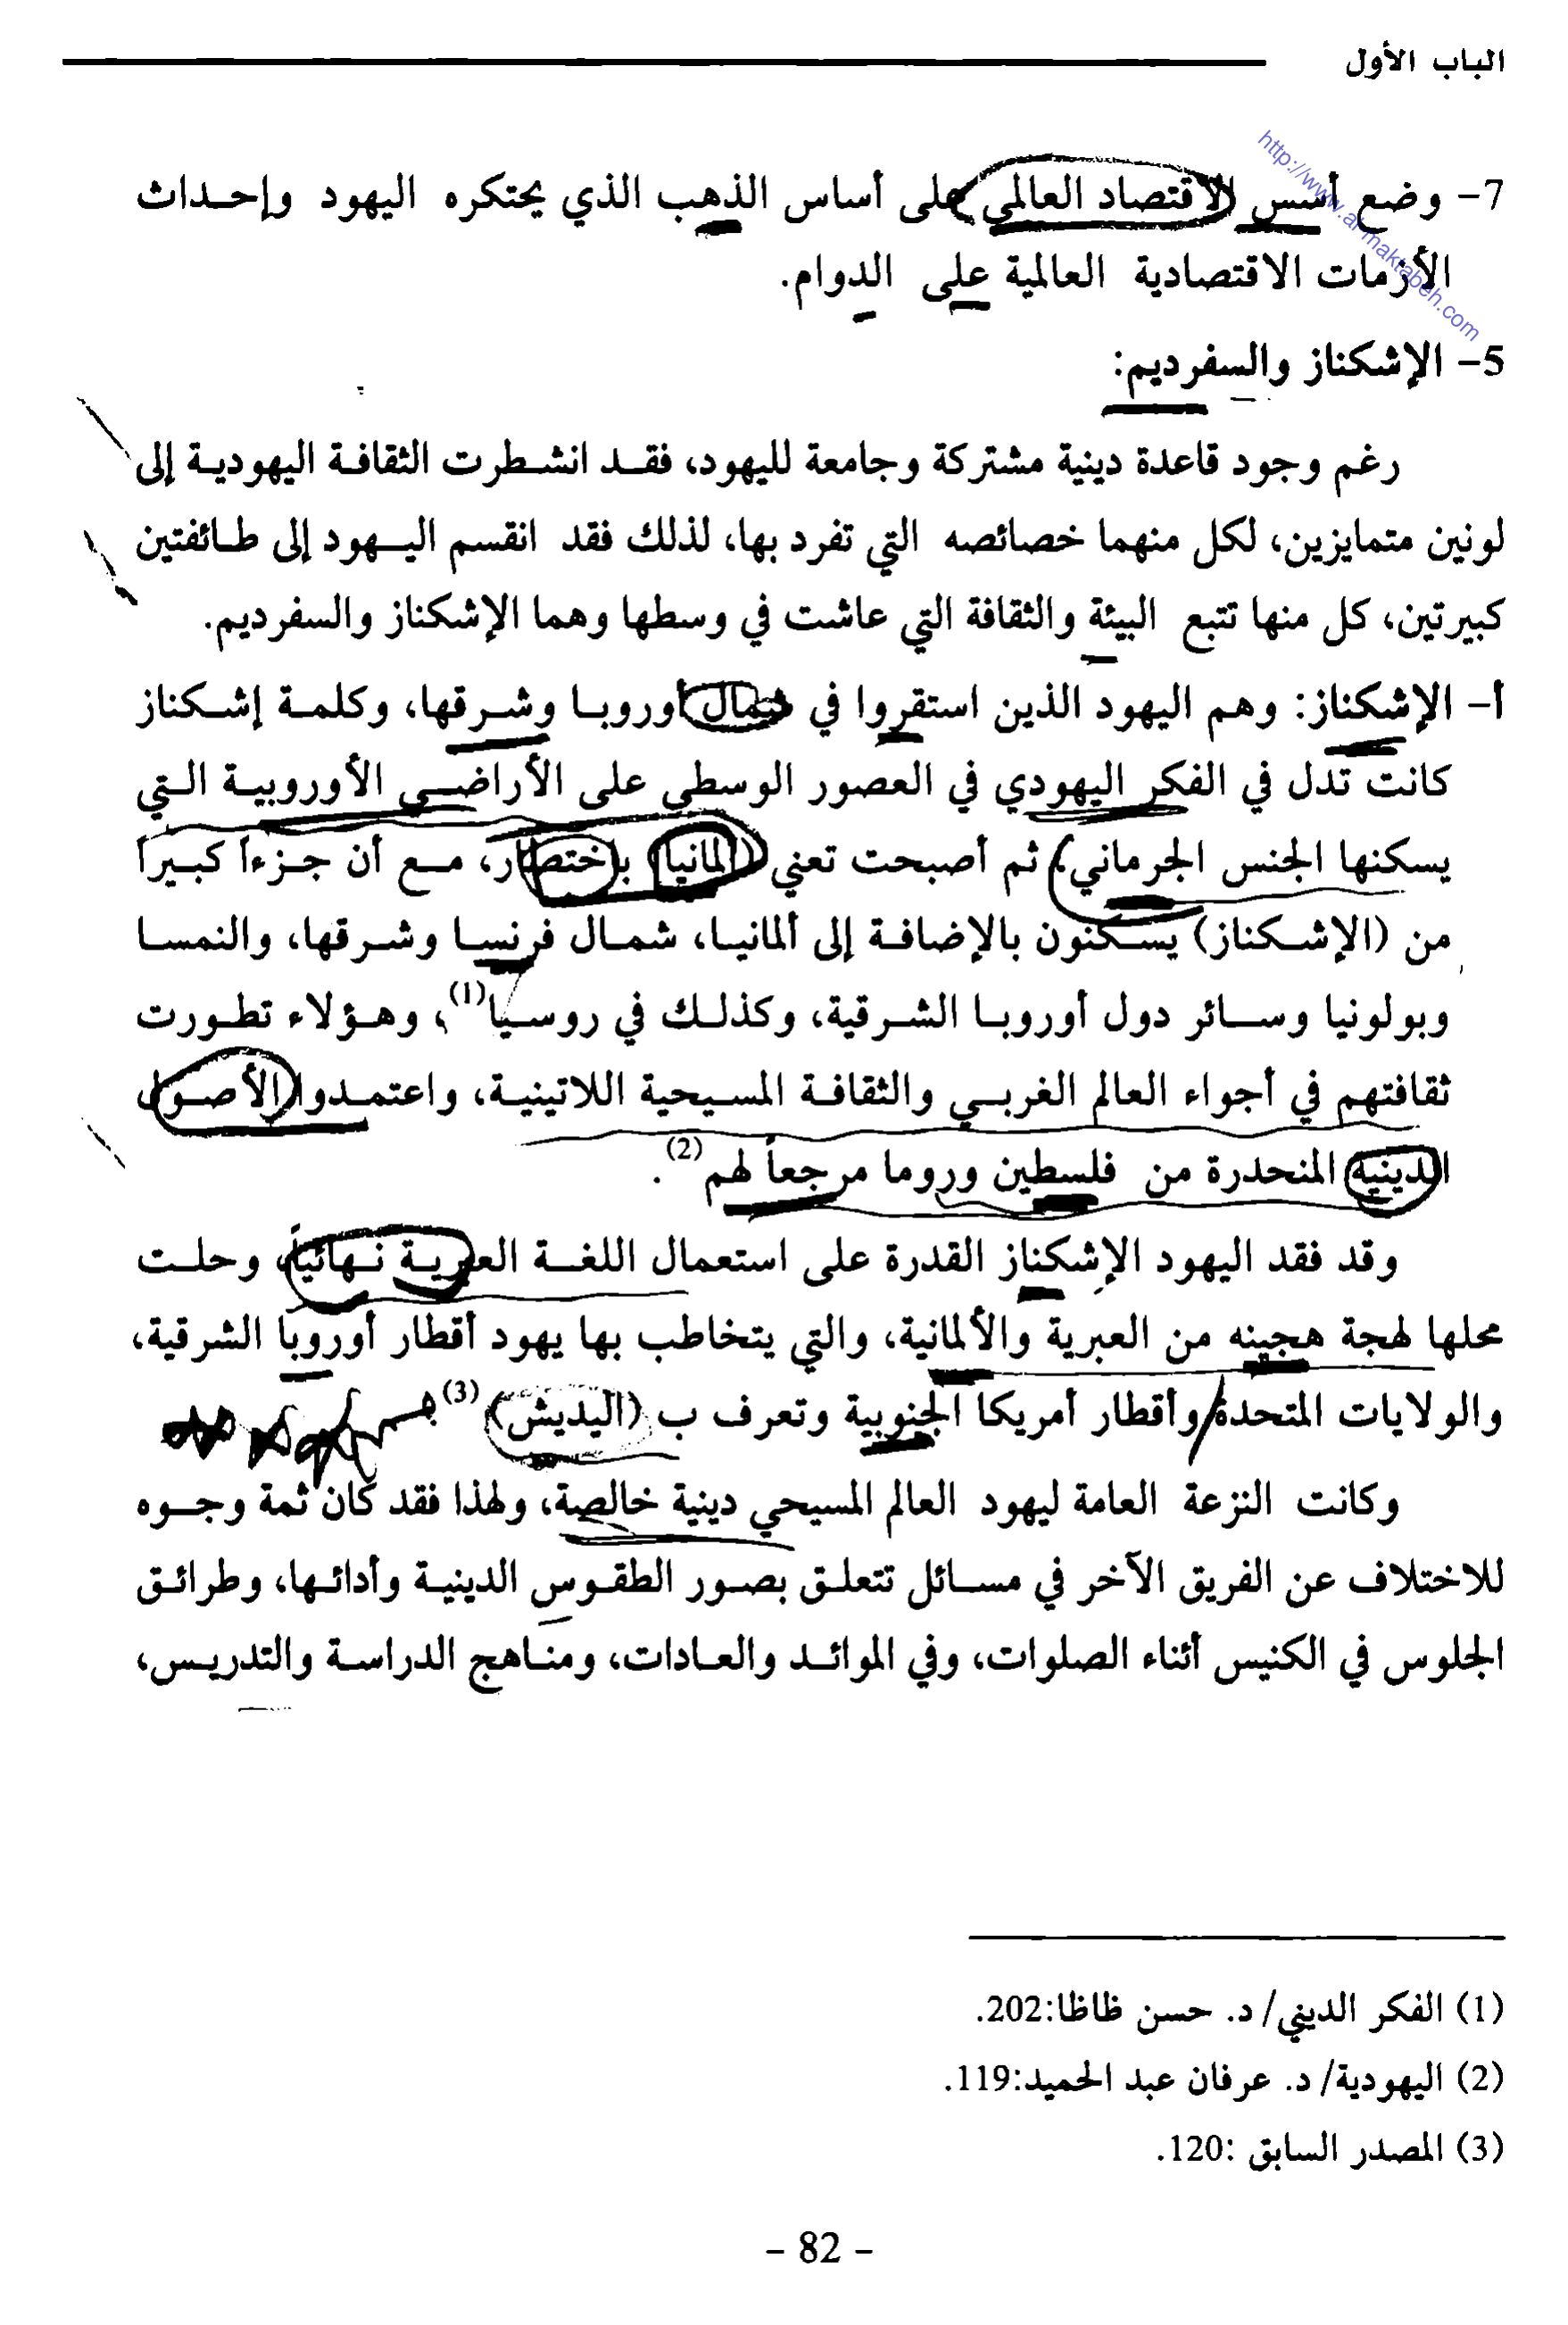 الباب الأول
http://www.al-maktabeh.com
7- وضع أسس الاقتصاد العالمي على أساس الذهب الذي يحتكره اليهود وإحداث
الأزمات الاقتصادية العالمية على الدوام.
5- الإشكناز والسفرديم:
رغم وجود قاعدة دينية مشتركة وجامعة لليهود، فقد انشطرت الثقافة اليهودية إلى
لونين متمايزين، لكل منهما خصائصه التي تفرد بها، لذلك فقد انقسم اليهود إلى طائفتين
كبيرتين، كل منها تتبع البيئة والثقافة التي عاشت في وسطها وهما الإشكناز والسفرديم.
أ- الإشكناز: وهم اليهود الذين استقروا في شمال أوروبا وشرقها، وكلمة إشكناز
كانت تدل في الفكر اليهودي في العصور الوسطى على الأراضي الأوروبية التي
يسكنها الجنس الجرماني، ثم أصبحت تعني (ألمانيا) باختصار، مع أن جزءاً كبيراً
من (الإشكناز) يسكنون بالإضافة إلى ألمانيا، شمال فرنسا وشرقها، والنمسا
وبولونيا وسائر دول أوروبا الشرقية، وكذلك في روسيا(1)، وهؤلاء تطورت
ثقافتهم في أجواء العالم الغربي والثقافة المسيحية اللاتينية، واعتمدوا الأصول
الدينية المنحدرة من فلسطين وروما مرجعاً لهم(2).
وقد فقد اليهود الإشكناز القدرة على استعمال اللغة العبرية نهائياً، وحلت
محلها لهجة هجينه من العبرية والألمانية، والتي يتخاطب بها يهود أقطار أوروبا الشرقية،
والولايات المتحدة وأقطار أمريكا الجنوبية وتعرف ب (اليديش)(3)
وكانت النزعة العامة ليهود العالم المسيحي دينية خالصة، ولهذا فقد كان ثمة وجوه
للاختلاف عن الفريق الآخر في مسائل تتعلق بصور الطقوس الدينية وأدائها، وطرائق
الجلوس في الكنيس أثناء الصلوات، وفي الموائد والعادات، ومناهج الدراسة والتدريس،
(1) الفكر الديني/ د. حسن ظاظا:202.
(2) اليهودية/ د. عرفان عبد الحميد:119.
(3) المصدر السابق :120.
- 82 -